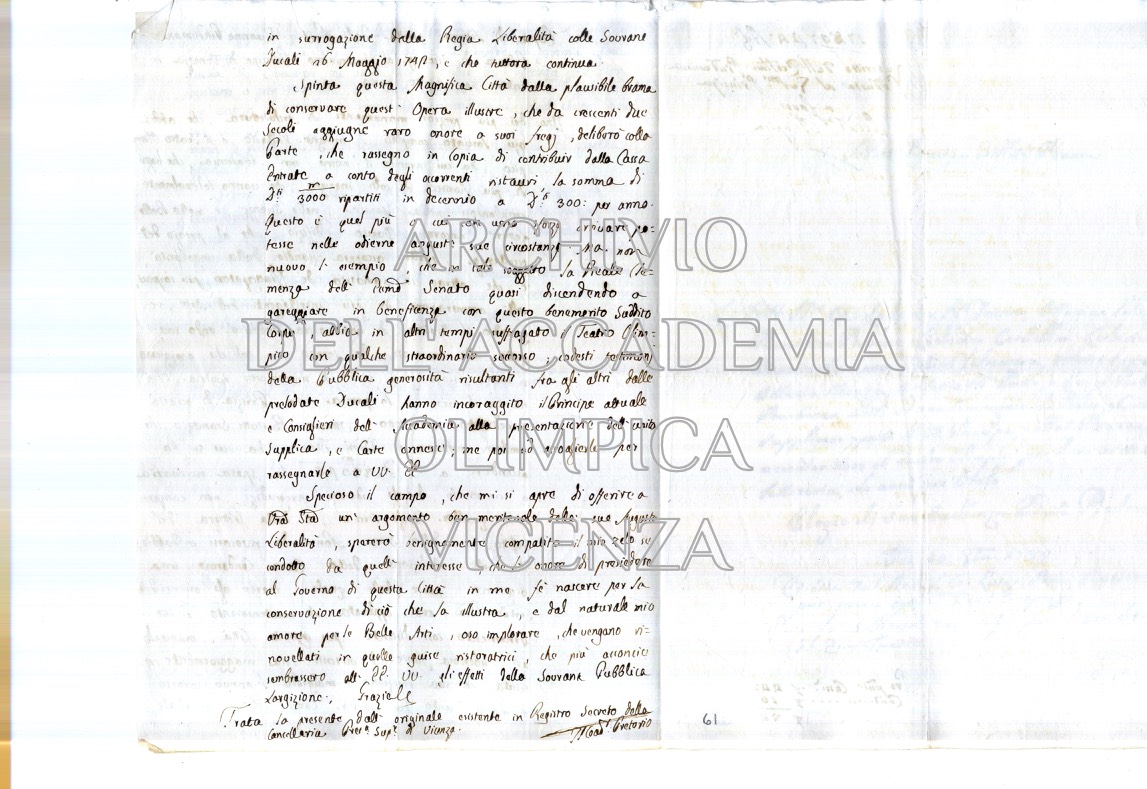 in surrogazione della Regia Liberalità colle Sovrane
Ducali 26 Maggio 1742, e che tuttora continua.
Spinta questa Magnifica Città dalla plausibile brama
di conservare quest' Opera illustre, che da crescenti due
secoli aggiugne raro onore a suoi fregj, deliberò colla
Parte, che rassegno in Copia di contribuir dalla Cassa
Entrate a conto degli ocorrenti ristauri, la somma di
D.ti 3000 ripartiti in decennio a D.ti 300: per anno.
Questo è quel più a cui arrivare po=
tesse nelle odierne anguste sue circostanze. Ma non
nuovo l' esempio, che in tale soggetto la Reale Cle=
menza dell' Senato quasi discendendo a
gareggiare in beneficenza con questo benemerito Suddito
Corpo, abbia in altri tempi suffragato il Teatro Olim=
pico con qualche straordinario soccorso; codesti testimonj
della Pubblica generosità risultanti fra gli altri dalle
prelodate Ducali hanno incoraggito il Principe attuale
e Consiglieri dell' Academia alla presentazione dell' unita
Supplica, e Carte annesse; me poi ad accoglierle per
rassegnarle a VV. EE.
Specioso il campo, che mi si apre di offerire a
Vra Stà un' argomento ben meritevole della sua Augusta
Liberalità, spererò benignamente compatito il mio zelo se
condotto da quell' interesse, che l' onore di presiedere
al Governo di questa Città in me fè nascere per la
conservazione di ciò che la illustra, e dal naturale mio
amore per le Belle Arti, oso implorare, che vengano ri=
novellati in quelle guise ristoratrici, che più acconcie
sembrassero all' EE. VV. gli effetti della Sovrana Pubblica
Largizione. Grazie
Tratta la presente dall' originale esistente in Registro Secreto della
Cancellaria Pref.a Sup.r di Vicenza.
Pretorio
61
ARCHIVIO
DELL'ACCADEMIA
OLIMPICA
VICENZA